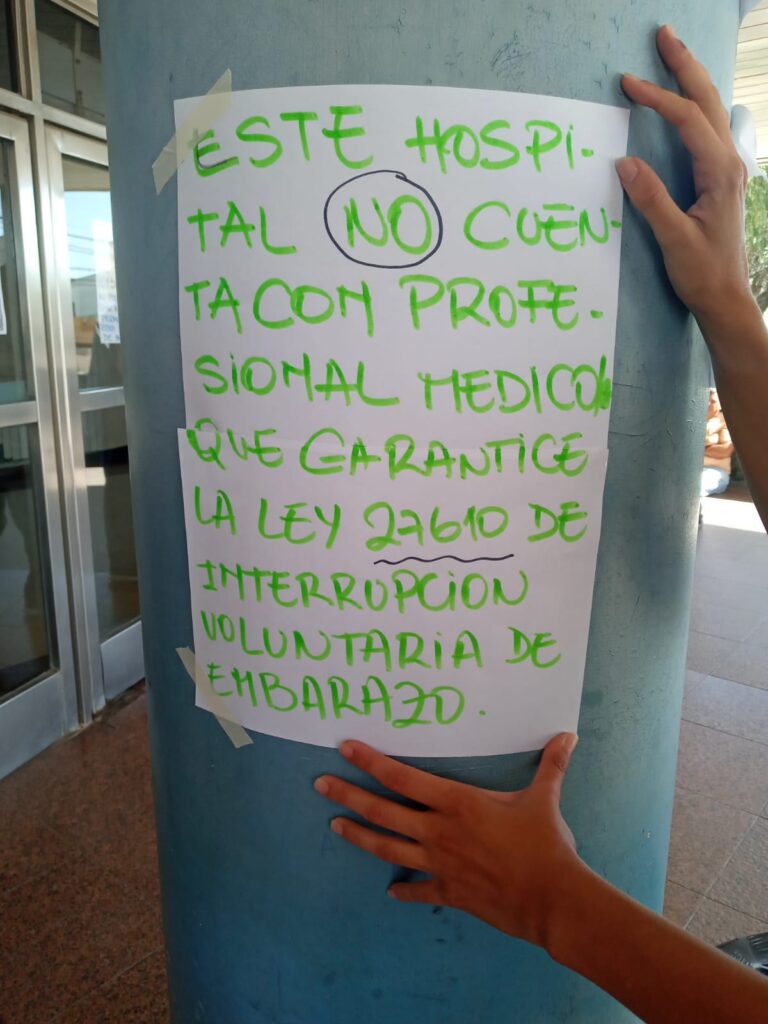 ESTE HOSPI-
TAL NO CUEN-
TA CON PROFE-
SIONAL MEDICO/
QUE GARANTICE
LA LEY 27610 DE
INTERRUPCION
VOLUNTARIA DE
EMBARAZO.